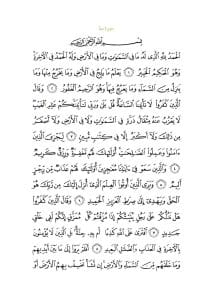 سورة سبأ
بسم الله الرحمن الرحيم
الحمد لله الذي له ما في السموت وما في الأرض وله الحمد في الآخرة
وهو الحكيم الخبير ١ يعلم ما يلج في الأرض وما يخرج منها وما
ينزل من السماء وما يعرج فيها وهو الرحيم الغفور ٢ وقال
الذين كفروا لا تأتينا الساعة قل بلى وربي لتأتينكم علم الغيب
لا يعزب عنه مثقال ذرة في السموت ولا في الأرض ولا أصغر
من ذلك ولا أكبر إلا في كتب مبين ٣ ليجزي الذين
ءامنوا وعملوا الصلحت أولئك لهم مغفرة ورزق كريم
٤ والذين سعو في ءايتنا معجزين أولئك لهم عذاب من رجز
أليم ٥ ويرى الذين أوتوا العلم الذي أنزل إليك من ربك هو
الحق ويهدي إلى صرط العزيز الحميد ٦ وقال الذين كفروا
هل ندلكم على رجل ينبئكم إذا مزقتم كل ممزق إنكم لفي خلق
جديد ٧ أفترى على الله كذبا أم به جنة بل الذين لا يؤمنون
بالآخرة في العذاب والضلل البعيد ٨ أفلم يروا إلى ما بين أيديهم
وما خلفهم من السماء والأرض إن نشأ نخسف بهم الأرض أو